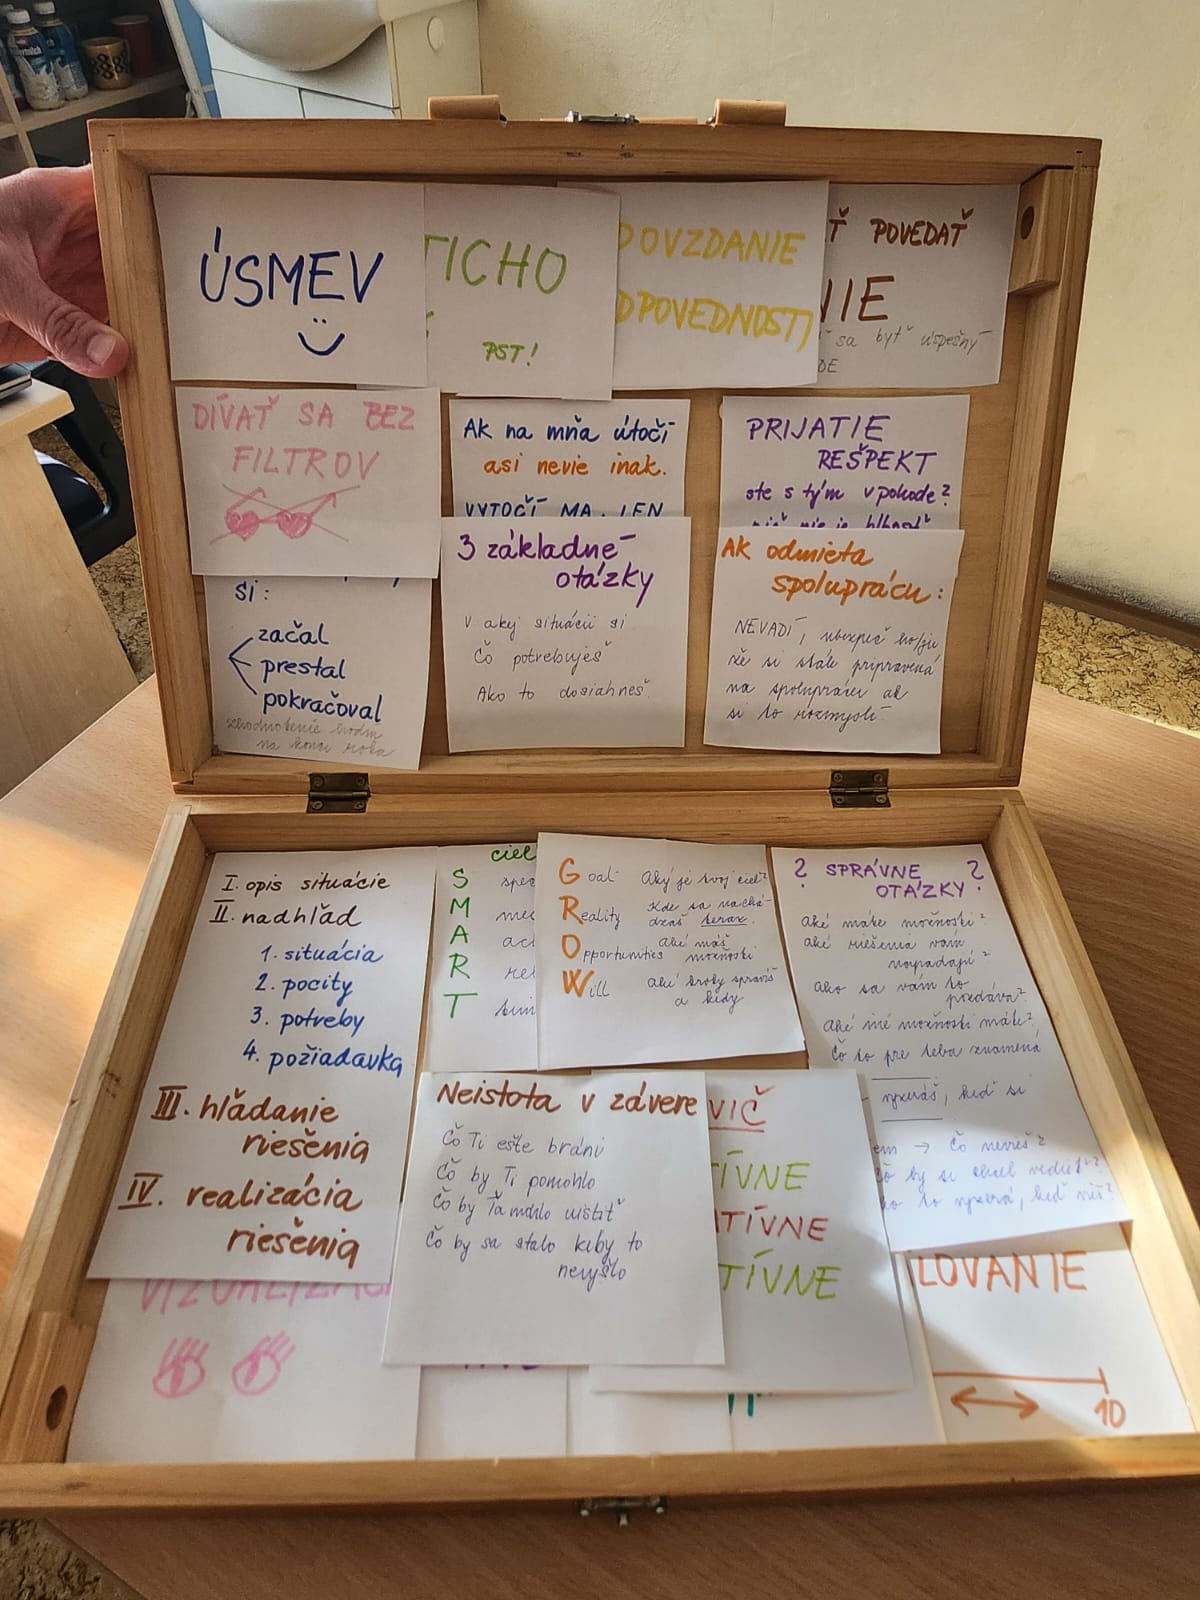 ÚSMEV
TICHO
PST!
DOVZDANIE
DPOVEDNOSTI
Ť POVEDAŤ
NIE
sa byť úspešný
DE
DÍVAŤ SA BEZ
FILTROV
Ak na mňa útočí
asi nevie inak.
VYTOČÍ MA, LEN
PRIJATIE
REŠPEKT
ste s tým v pohode?
si:
začal
prestal
pokračoval
zhodnotenie
na konci roka
3 základné
otázky
V akej situácii si
Čo potrebuješ
Ako to dosiahneš.
Ak odmieta
spoluprácu:
NEVADÍ, ubezpeč ho/ju
že si stále pripravená
na spoluprácu ak
si to rozmyslí.
I. opis situácie
II. nadhľad
1. situácia
2. pocity
3. potreby
4. požiadavka
III. hľadanie
riešenia
IV. realizácia
riešenia
cieľ
S
M
A
R
T
Goal Aký je tvoj cieľ?
Reality Kde sa nachá-
dzaš teraz.
Opportunities aké máš
možnosti
Will aké kroky spravíš
a kedy
? SPRÁVNE ?
OTÁZKY
aké máte možnosti?
aké riešenia vám
napadajú?
ako sa vám to
pozdáva?
Aké iné možnosti máte?
Čo to pre teba znamená
, keď si
em → čo nevieš?
čo by si chcel vedieť??
Neistota v závere
Čo Ti ešte bráni
Čo by Ti pomohlo
Čo by Ťa mohlo uistiť
Čo by sa stalo keby to
nevyšlo
VIČ
TÍVNE
ATÍVNE
TÍVNE
VIZUALIZÁCI
LOVANIE
10